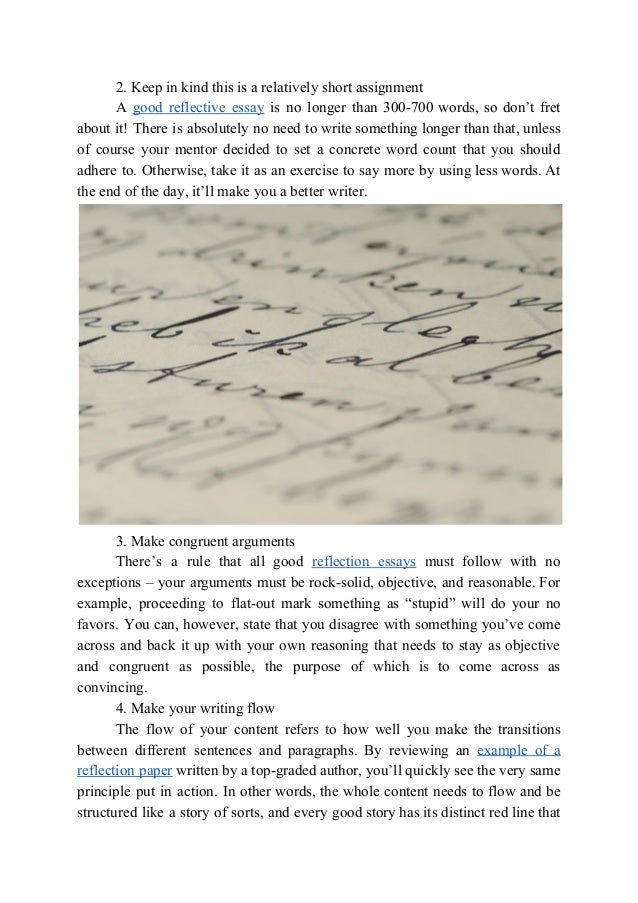 2. Keep in kind this is a relatively short assignment
A good reflective essay is no longer than 300-700 words, so don’t fret
about it! There is absolutely no need to write something longer than that, unless
of course your mentor decided to set a concrete word count that you should
adhere to. Otherwise, take it as an exercise to say more by using less words. At
the end of the day, it’ll make you a better writer.
3. Make congruent arguments
There’s a rule that all good reflection essays must follow with no
exceptions – your arguments must be rock-solid, objective, and reasonable. For
example, proceeding to flat-out mark something as “stupid” will do your no
favors. You can, however, state that you disagree with something you’ve come
across and back it up with your own reasoning that needs to stay as objective
and congruent as possible, the purpose of which is to come across as
convincing.
4. Make your writing flow
The flow of your content refers to how well you make the transitions
between different sentences and paragraphs. By reviewing an example of a
reflection paper written by a top-graded author, you’ll quickly see the very same
principle put in action. In other words, the whole content needs to flow and be
structured like a story of sorts, and every good story has its distinct red line that